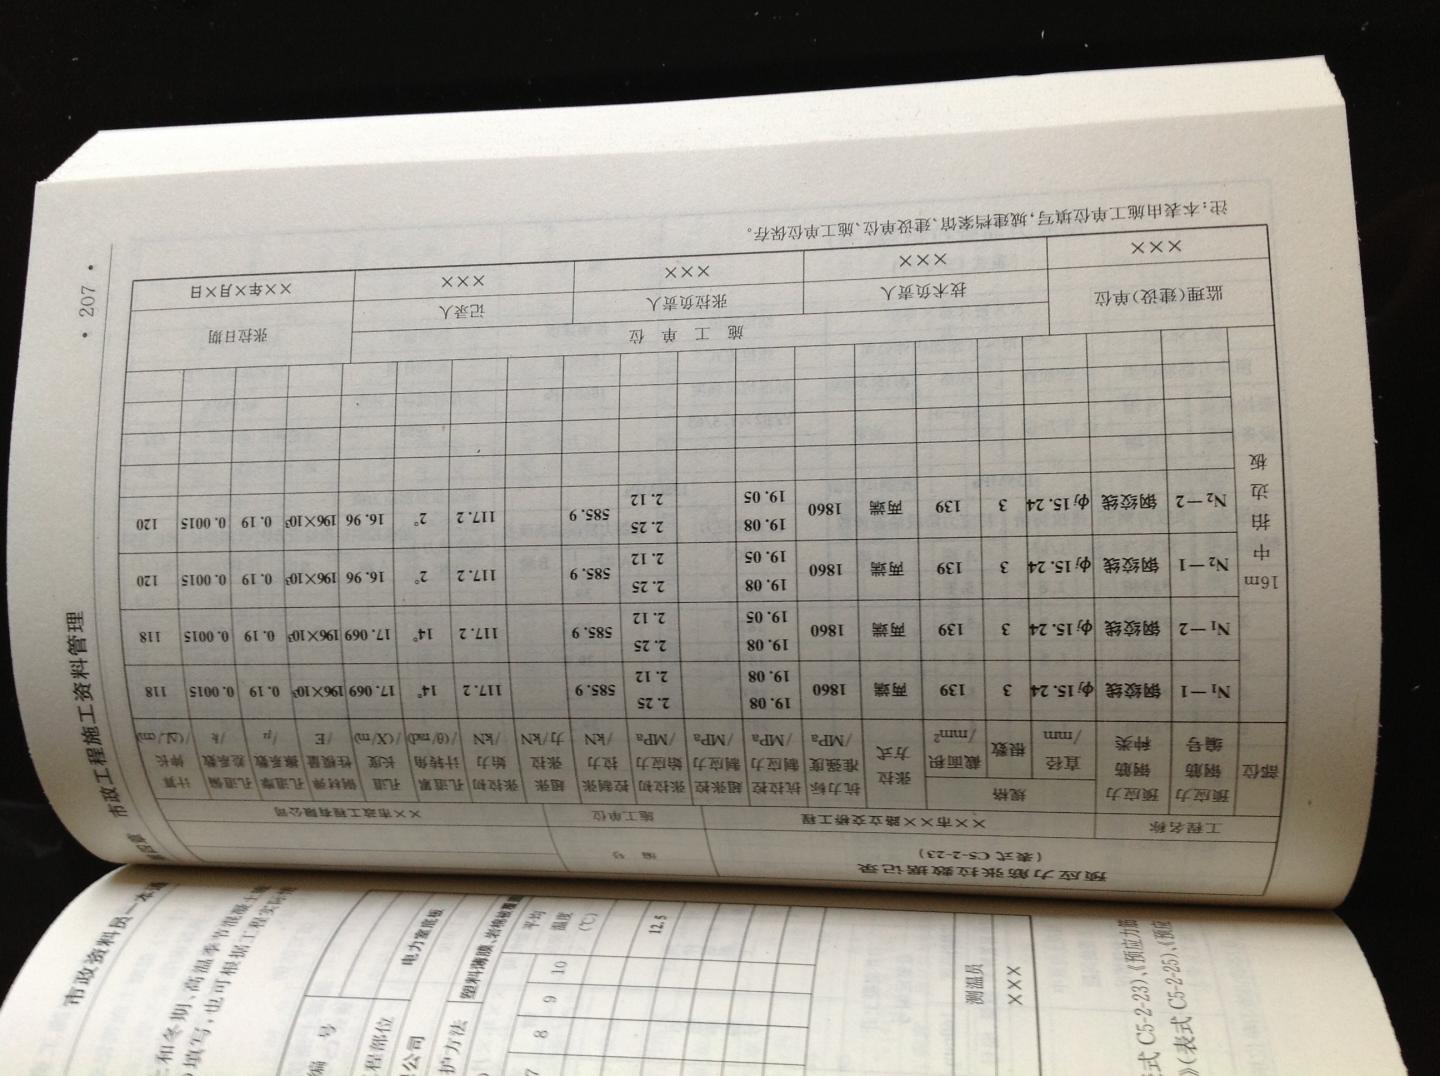 市政工程施工资料管理
· 207 ·
预应力筋张拉数据记录
(表式 C5-2-23)
编 号
工程名称 ××市××路立交桥工程 施工单位 ××市政工程有限公司
部位 预应力钢筋编号 预应力钢筋种类 规格 张拉方式 抗力标准强度/MPa 抗拉控制应力/MPa 超张拉控制应力/MPa 张拉初始应力/MPa 控制张拉力/kN 超张拉力/kN 张拉初始力/kN 孔道累计转角/(θ/rad) 孔道长度/(X/m) 钢材弹性模量/E 孔道摩擦系数/μ 孔道偏差系数/k 计算伸长
直径/mm 根数 截面积/mm²
16m 中 拍 边 板
N₁—1 钢绞线 φj 15.24 3 139 两端 1860 19.08 19.08 2.25 2.12 585.9 117.2 14° 17.069 196×10³ 0.19 0.0015 118
N₁—2 钢绞线 φj 15.24 3 139 两端 1860 19.08 19.05 2.25 2.12 585.9 117.2 14° 17.069 196×10³ 0.19 0.0015 118
N₂—1 钢绞线 φj 15.24 3 139 两端 1860 19.08 19.05 2.25 2.12 585.9 117.2 2° 16.96 196×10³ 0.19 0.0015 120
N₂—2 钢绞线 φj 15.24 3 139 两端 1860 19.08 19.05 2.25 2.12 585.9 117.2 2° 16.96 196×10³ 0.19 0.0015 120
监理(建设)单位 施 工 单 位 张拉日期
技术负责人 张拉负责人 记录人
××× ××× ××× ××× ××年×月×日
注:本表由施工单位填写,城建档案馆、建设单位、施工单位保存。
市政资料员一本通
和冬期、高温季节混凝土
填写,也可根据工程实际
编 号
程部位 电力室底板
公司
护方法 塑料薄膜、岩棉被覆盖
7 8 9 10 平均温度(℃)
12.5
测温员
×××
表式 C5-2-23)、《预应力筋
》(表式 C5-2-25)、《预应